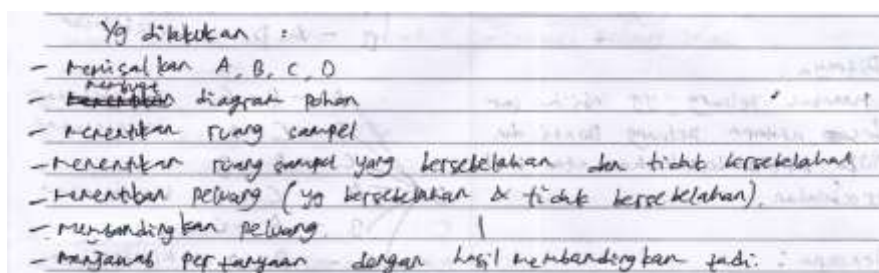 Yg dilakukan :
- Memisalkan A, B, C, D
- membuat diagram pohon
- Menentukan ruang sampel
- Menentukan ruang sampel yang bersebelahan dan tidak bersebelahan
- Menentukan peluang (yg bersebelahan & tidak bersebelahan).
- Membandingkan peluang.
- Menjawab pertanyaan dengan hasil membandingkan tadi.